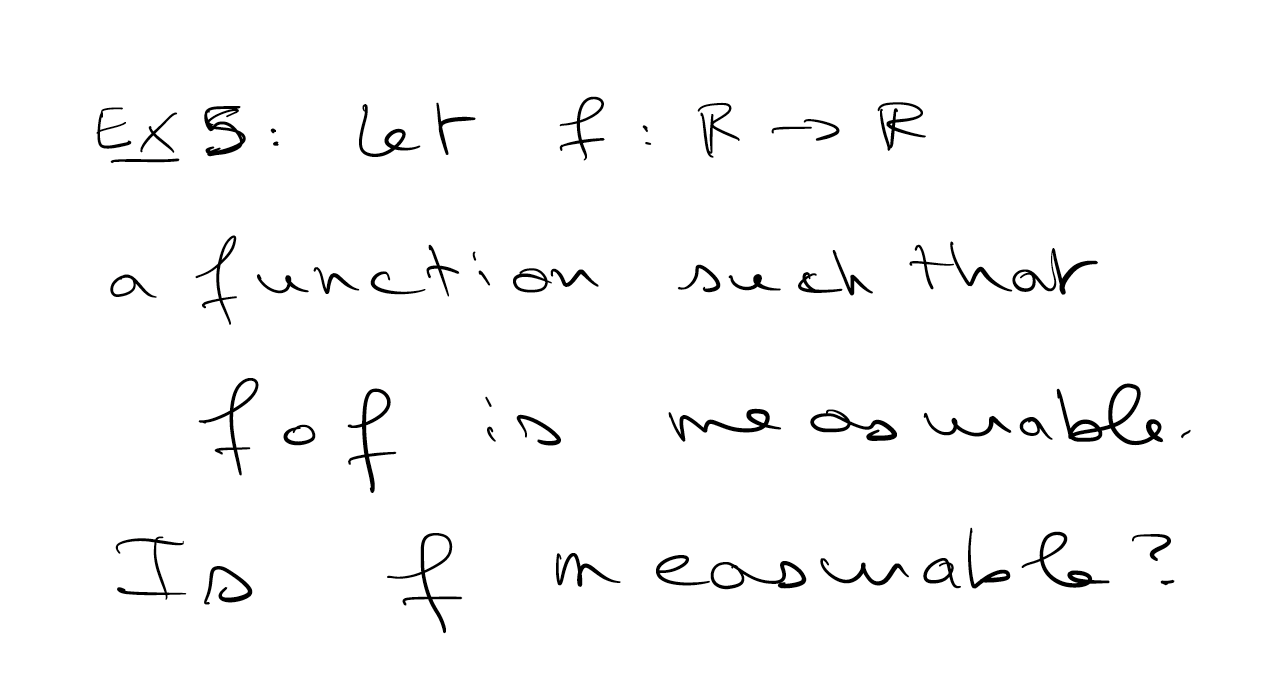 EX 5: Let f: ℝ → ℝ
a function such that
f∘f is measurable.
Is f measurable?